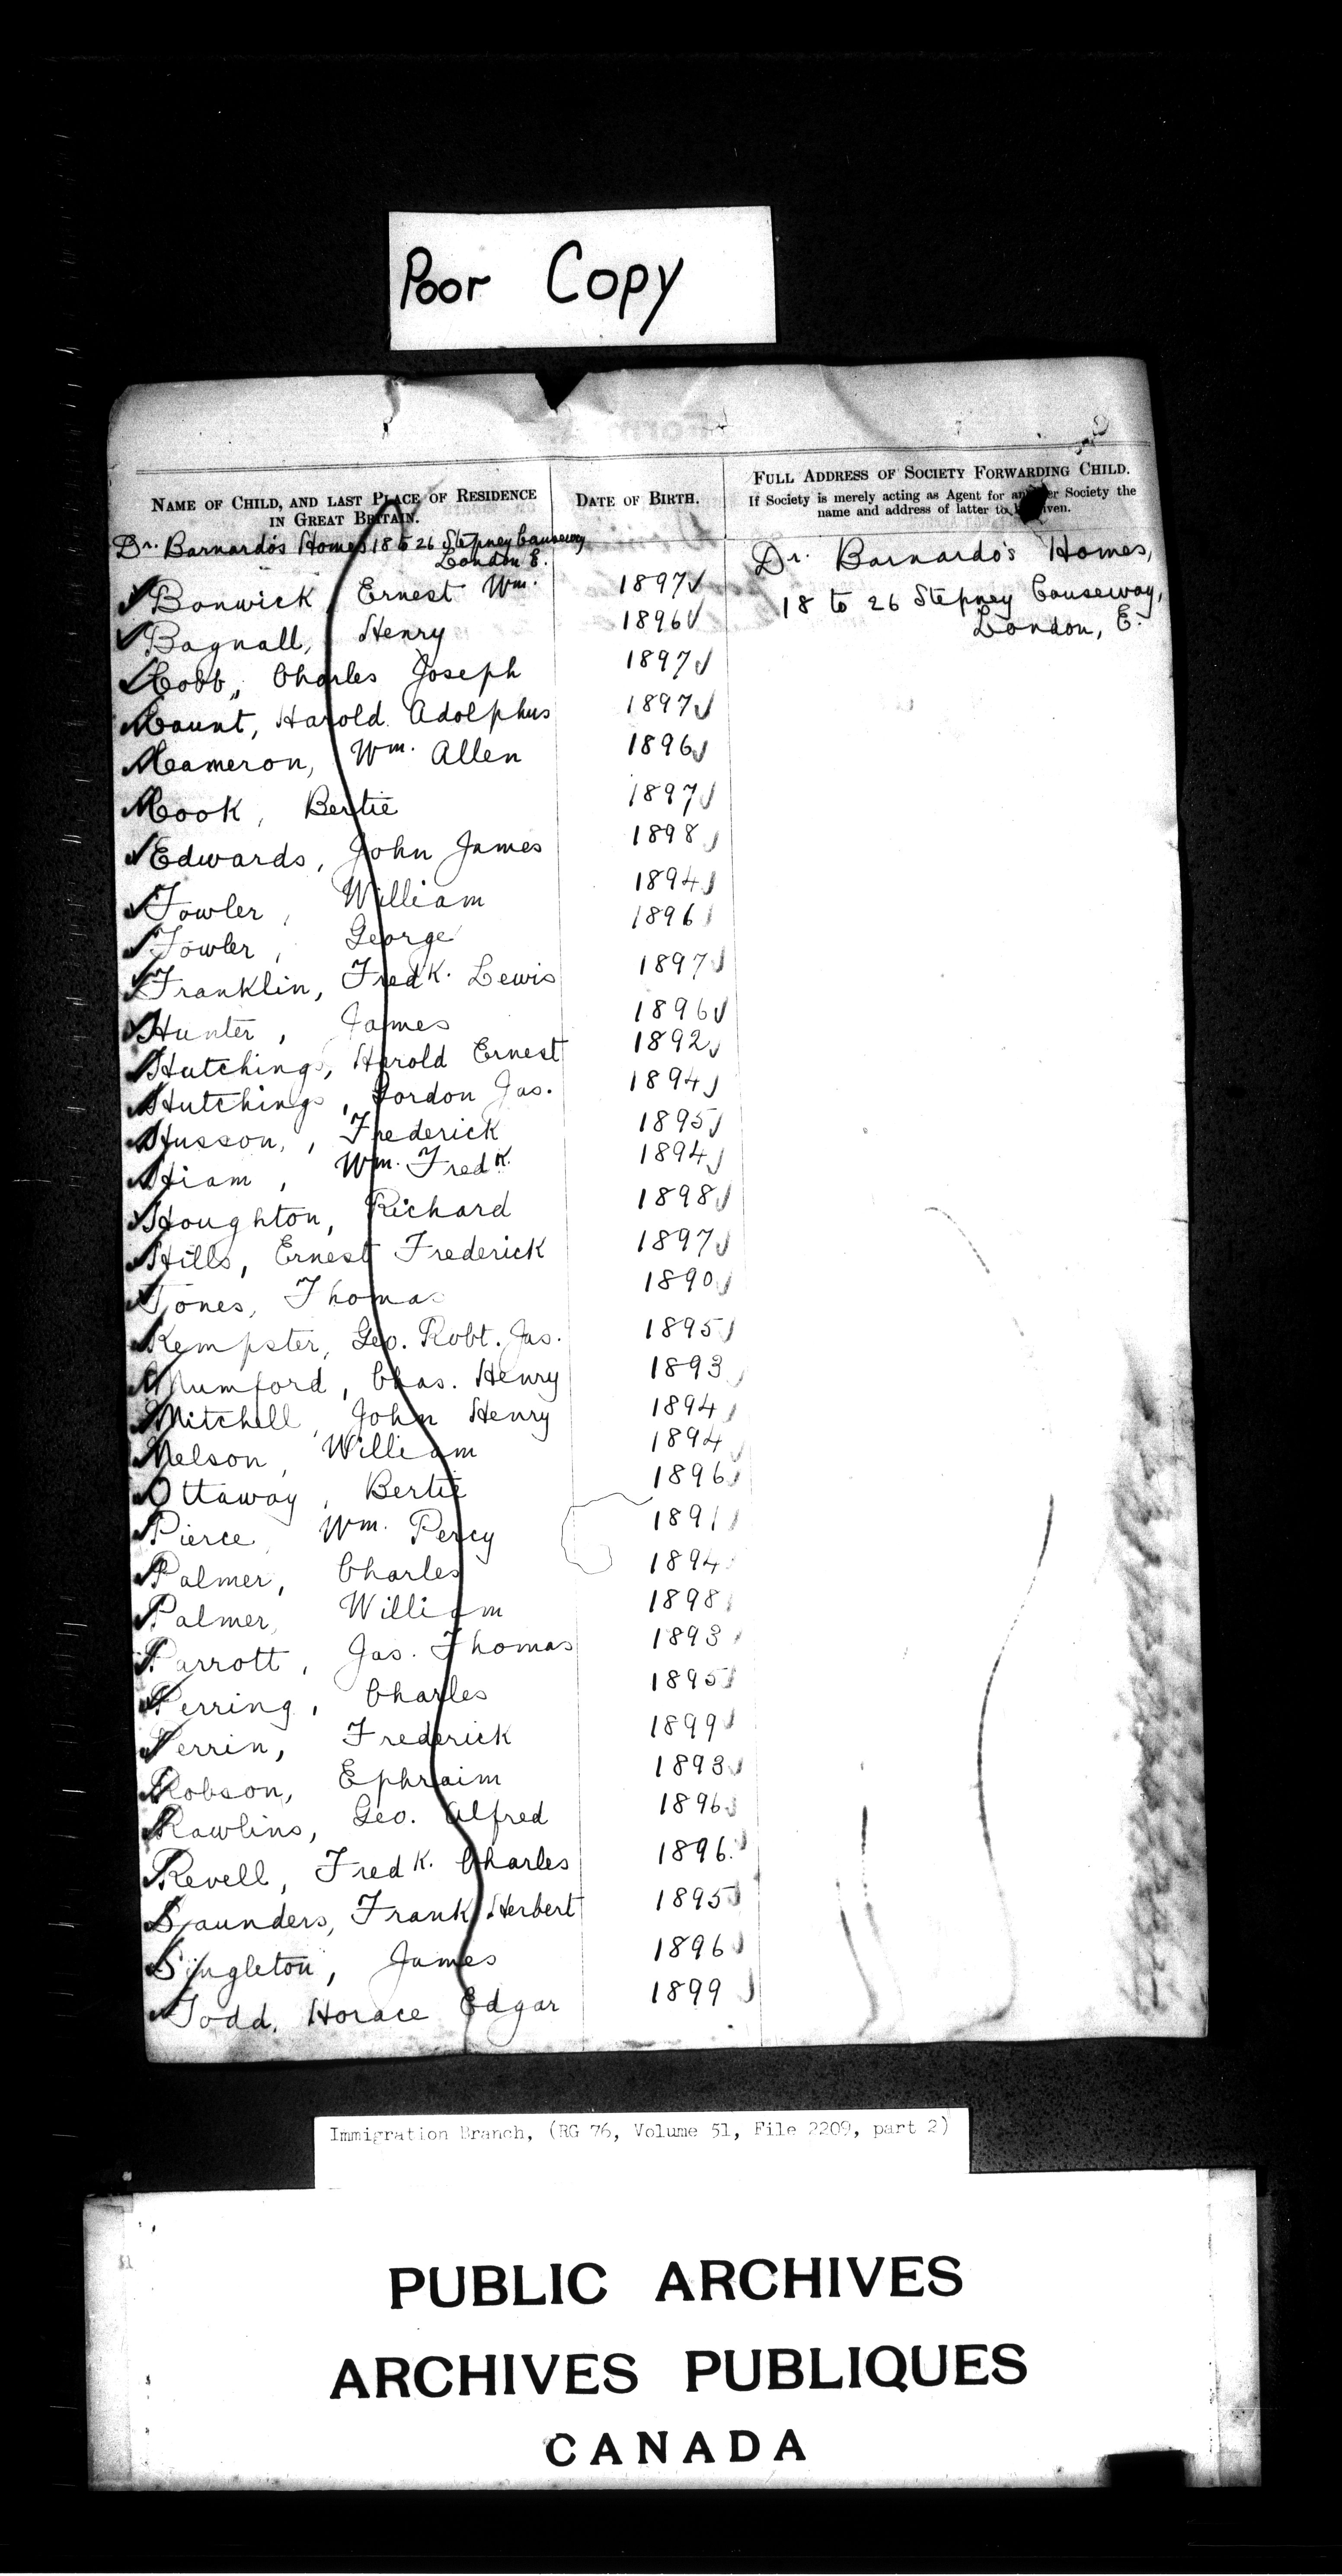 Poor Copy
NAME OF CHILD, AND LAST PLACE OF RESIDENCE
IN GREAT BRITAIN.
DATE OF BIRTH.
FULL ADDRESS OF SOCIETY FORWARDING CHILD.
If Society is merely acting as Agent for another Society the
name and address of latter to be given.
Dr. Barnardo's Homes 18 to 26 Stepney Causeway
London E.
Dr. Barnardo's Homes,
18 to 26 Stepney Causeway,
London, E.
Bonwick, Ernest Wm. 1897
Bagnall, Henry 1896
Cobb, Charles Joseph 1897
Count, Harold Adolphus 1897
Cameron, Wm. Allen 1896
Cook, Bertie 1897
Edwards, John James 1898
Fowler, William 1894
Fowler, George 1896
Franklin, Fredk. Lewis 1897
Hunter, James 1896
Hutchings, Harold Ernest 1892
Hutchings, Gordon Jas. 1894
Husson, Frederick 1895
Hiam, Wm. Fredk. 1894
Houghton, Richard 1898
Hills, Ernest Frederick 1897
Jones, Thomas 1890
Kempster, Geo. Robt. Jas. 1895
Mumford, Chas. Henry 1893
Mitchell, John Henry 1894
Nelson, William 1894
Ottaway, Bertie 1896
Pierce, Wm. Percy 1891
Palmer, Charles 1894
Palmer, William 1898
Parrott, Jas. Thomas 1893
Perring, Charles 1895
Perrin, Frederick 1899
Robson, Ephraim 1893
Rawlins, Geo. Alfred 1896
Revell, Fredk. Charles 1896
Saunders, Frank Herbert 1895
Singleton, James 1896
Todd, Horace Edgar 1899
Immigration Branch, (RG 76, Volume 51, File 2209, part 2)
PUBLIC ARCHIVES
ARCHIVES PUBLIQUES
CANADA